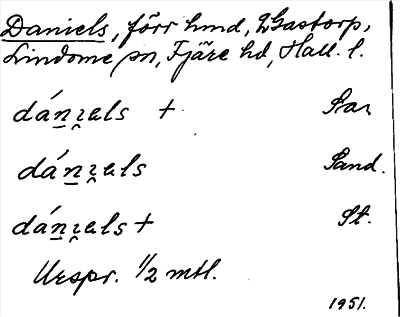 Daniels, förr hmd, Gastorp,
Lindome sn, Fjäre hd, Hall. l.
dán̲ɪ̯als + Sar
dán̲ɪ̯als Sand.
dán̲ɪ̯als + St.
Urspr. 1/2 mtl.
1951.